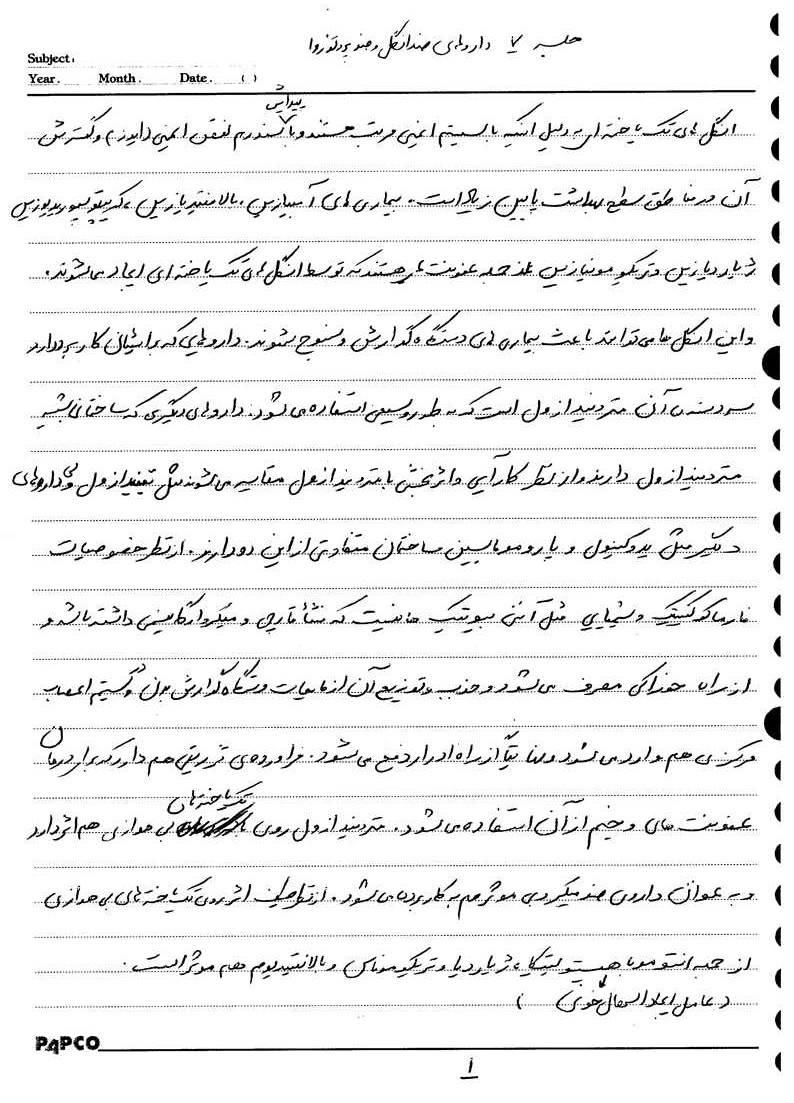 جلسه ۷ داروهای ضد انگل و ضد پروتوزوا
Subject:
Year. Month. Date. ( )
پیدایش
انگل های تک یاخته ای به دلیل اینکه با سیستم ایمنی مرتبط هستند و با سندرم نقص ایمنی (ایدز) و گسترش
آن در مناطق سطح بهداشت پایین زیاد است. بیماری های آمیبیازیس، بالانتیدیازیس، کریپتوسپوریدیوزیس
ژیاردیازیس و تریکومونیازیس از جمله عفونت هایی هستند که توسط انگل های تک یاخته ای ایجاد می شوند.
و این انگل ها می توانند باعث بیماری های دستگاه گوارش و نسوج شوند. داروهایی که برایشان کاربرد دارد
سردسته ی آن مترونیدازول است که به طور وسیعی استفاده می شود. داروهای دیگری که ساختمانی شبیه
مترونیدازول دارند و از نظر کارآیی و اثربخشی با مترونیدازول مقایسه می شوند مثل تینیدازول ولی داروهای
دیگر مثل یدوکینول و پارومومایسین ساختمان متفاوتی از این دو دارند. از نظر خصوصیات
فارماکوکینتیک و شیمیایی مثل آنتی بیوتیک هاییست که منشأ قارچی و میکروارگانیسمی داشته باشد و
از راه خوراکی مصرف می شود و جذب و توزیع آن از مایعات دستگاه گوارش بدن و سیستم اعصاب
مرکزی هم وارد می شود و نهایتاً از راه ادرار دفع می شود. فراورده ی تزریقی هم دارد که برای درمان
تک یاخته های
عفونت های وخیم از آن استفاده می شود. مترونیدازول روی بی هوازی هم اثر دارد
و به عنوان داروی ضد میکروبی موثر هم به کار برده می شود. از نظر طیف اثر روی تک یاخته های بی هوازی
از جمله انتوموبا هیستولیتیکا، ژیاردیا و تریکوموناس و بالانتیدیوم هم موثر است.
(عامل ایجاد اسهال خونی)
PAPCO
۱